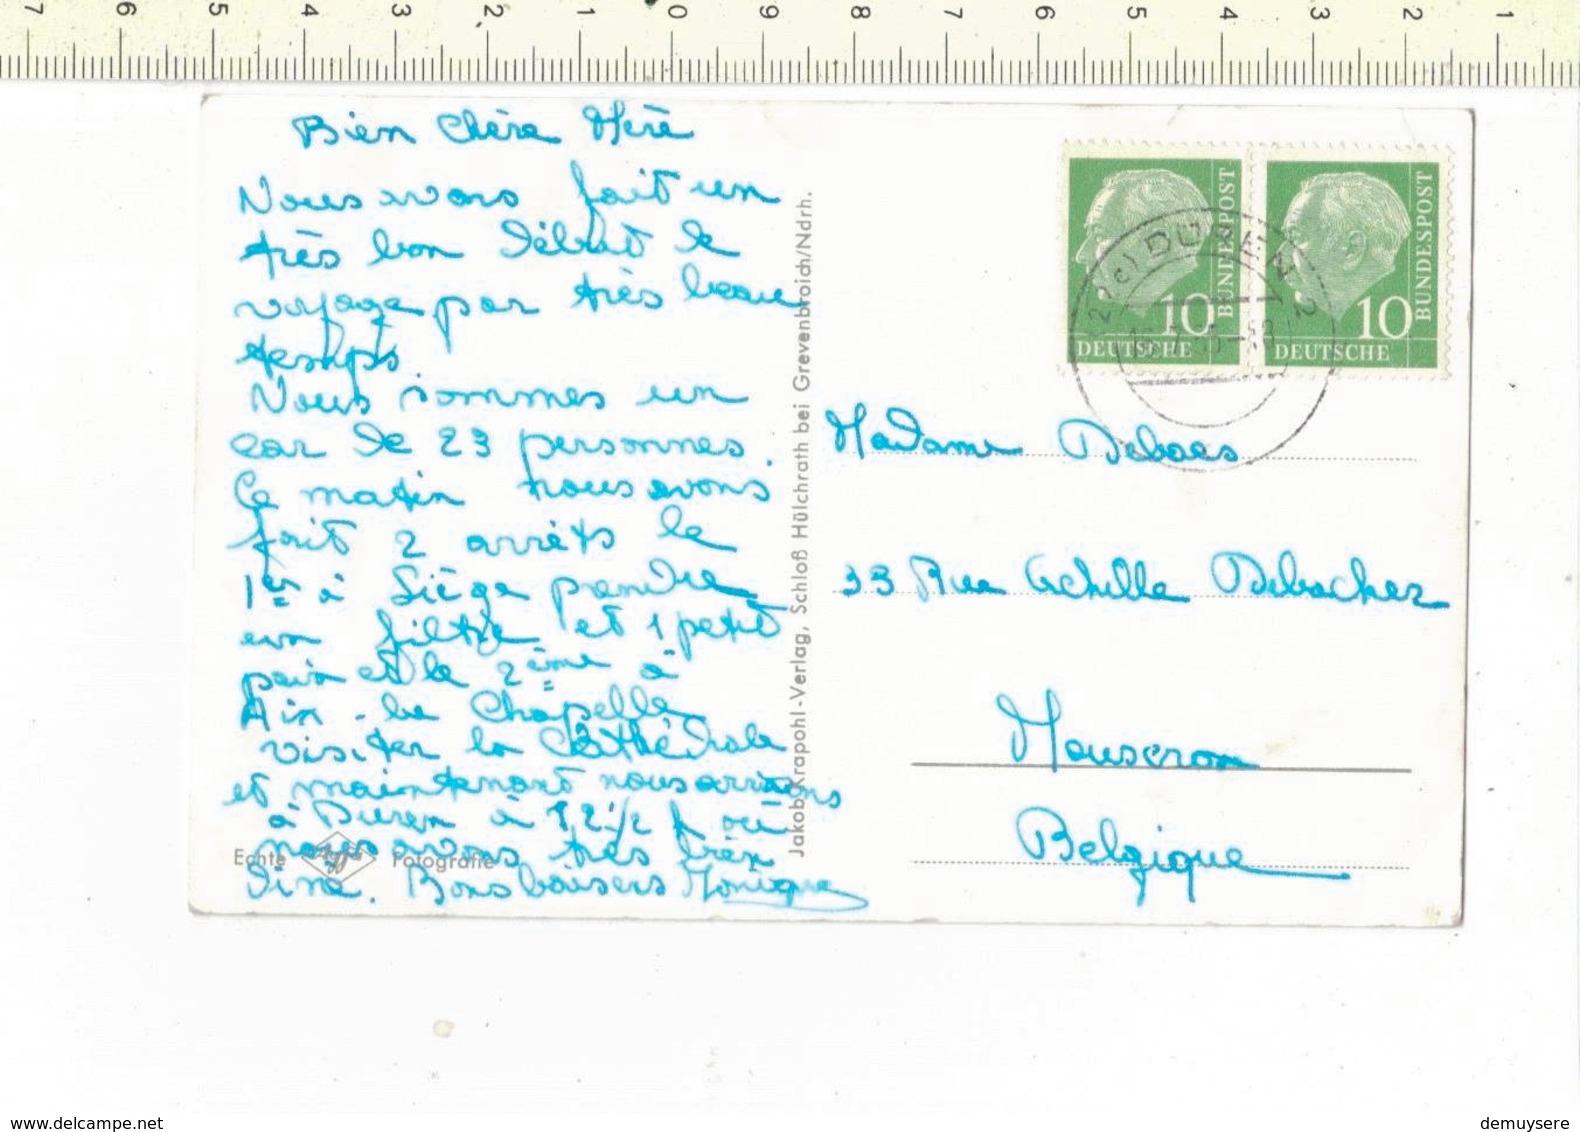 Bien Chère Mère
Nous avons fait un
très bon début de
voyage par très beau
temps
Nous sommes un
car de 23 personnes.
Ce matin nous avons
fait 2 arrêts le
1er à Liège prendre
un filtre et 1 petit
pain et le 2ème à
Aix-La Chapelle
visiter la Cathédrale
et maintenant nous arrivons
à Duren à 12 1/2 h où
nous avons très bien
diné. Bons baisers Monique
Echte Agfa Fotografie
Jakob Krapohl-Verlag, Schloß Hülchrath bei Grevenbroich/Ndrh.
DEUTSCHE BUNDESPOST 10
DEUTSCHE BUNDESPOST 10
(22c) DÜREN 2
Madame Deboes
33 Rue Achille Debacker
Mouscron
Belgique
7 6 5 4 3 2 1 0 9 8 7 6 5 4 3 2 1
www.delcampe.net
demuysere